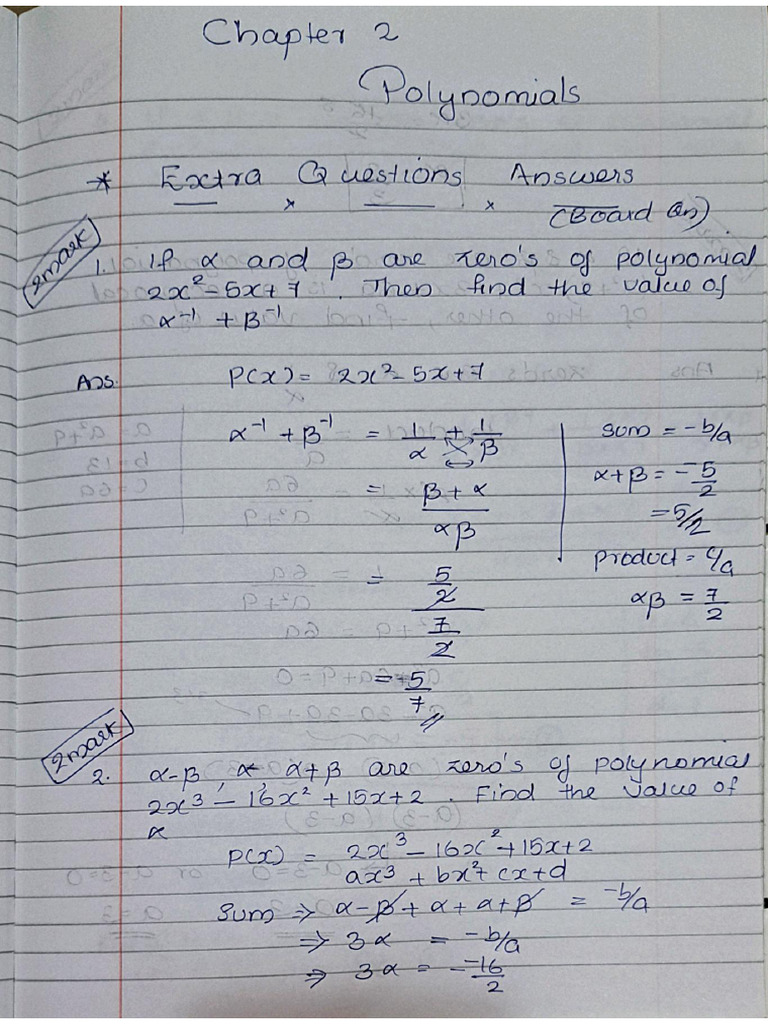 Chapter 2
Polynomials
* Extra Questions Answers
(Board Qn)
2mark
1. If α and β are zero's of polynomial
2x²-5x+7. Then find the value of
α⁻¹ + β⁻¹
Ans. P(x) = 2x²-5x+7
α⁻¹ + β⁻¹ = 1/α + 1/β
= β+α/αβ
= 5/2 / 7/2
= 5/7
sum = -b/a
α+β = -5/2
= 5/2
product = c/a
αβ = 7/2
2mark
2. α-β, α, α+β are zero's of polynomial
2x³ - 16x² + 15x + 2. Find the value of
α
P(x) = 2x³ - 16x² + 15x + 2
ax³ + bx² + cx + d
Sum ⇒ α-β + α + α+β = -b/a
⇒ 3α = -b/a
⇒ 3α = --16/2